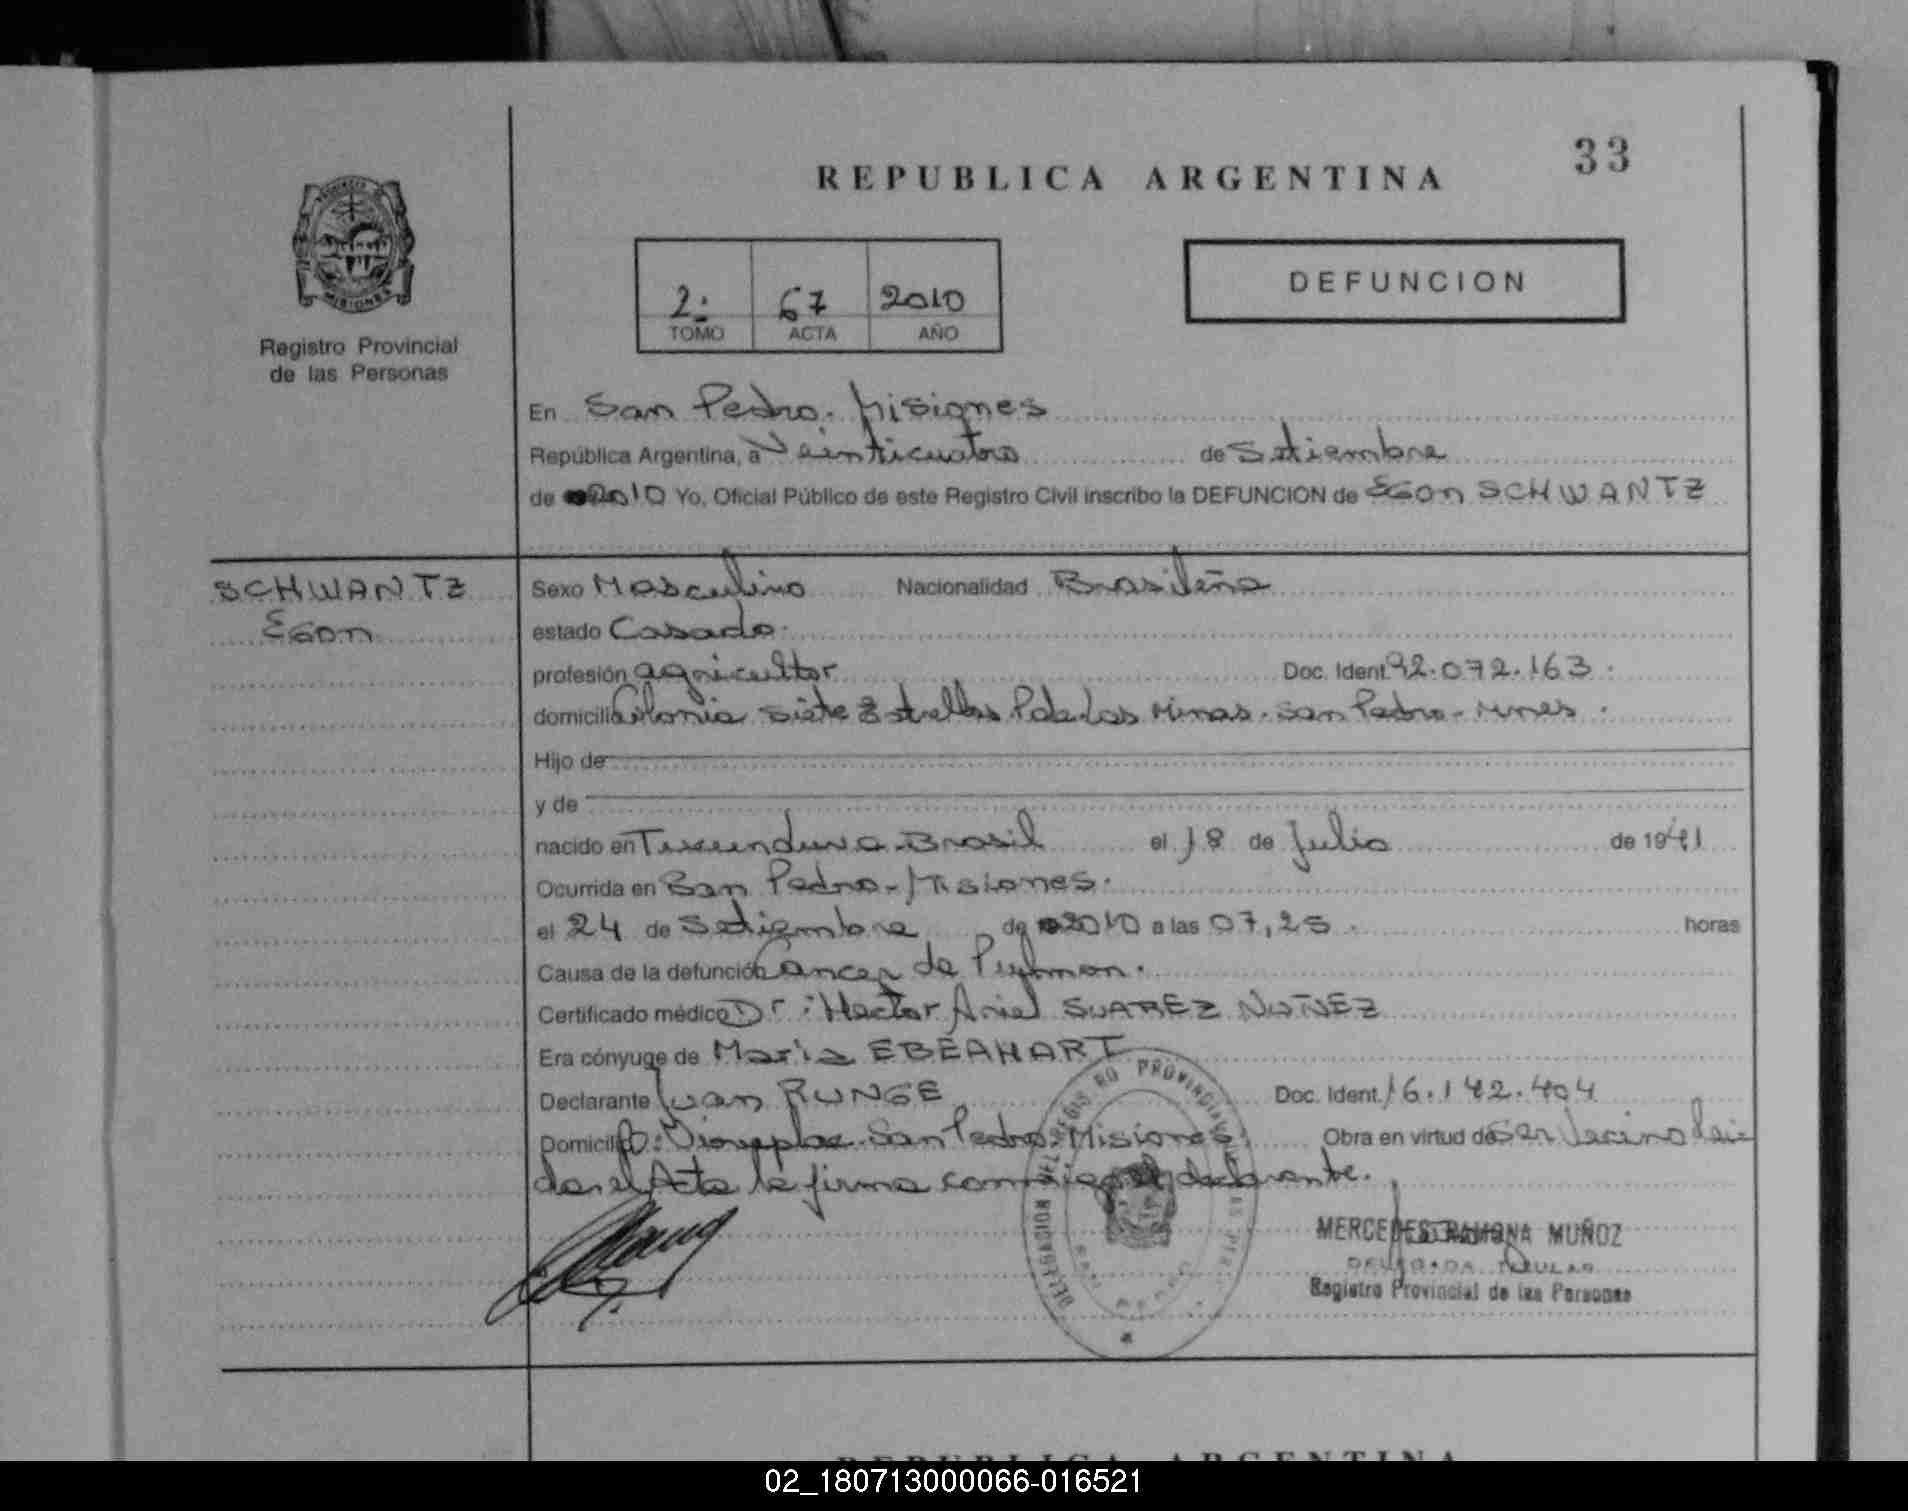 33
REPUBLICA ARGENTINA
PROVINCIA DE
MISIONES
Registro Provincial
de las Personas
2: 67 2010
TOMO ACTA AÑO
DEFUNCION
En San Pedro. Misiones
República Argentina, a Veinticuatro de Setiembre
de 2010 Yo, Oficial Público de este Registro Civil inscribo la DEFUNCION de Egon SCHWANTZ
SCHWANTZ
Egon
Sexo Masculino Nacionalidad Brasileña
estado Casado.
profesión agricultor Doc. Ident 92.072.163.
domicilio Colonia Siete Estrellas Pde. Las Minas. San Pedro - Mnes.
Hijo de
y de
nacido en Tucunduva - Brasil el 18 de Julio de 1941
Ocurrida en San Pedro - Misiones.
el 24 de Setiembre de 2010 a las 07,25. horas
Causa de la defunción Cancer de Pulmon.
Certificado médico Dr: Hector Ariel SUAREZ NUÑEZ
Era cónyuge de Maria EBEAHART
Declarante Juan RUNGE Doc. Ident. 16.142.404
Domicilio: San Pedro. Misiones Obra en virtud de Ser Vecino Leí
da el Acta la firma conmigo el declarante.
DELEGACION DEL REGISTRO PROVINCIAL DE LAS PER
MERCEDES RAMONA MUÑOZ
DELEGADA TITULAR
Registro Provincial de las Personas
REPUBLICA ARGENTINA
02_180713000066-016521